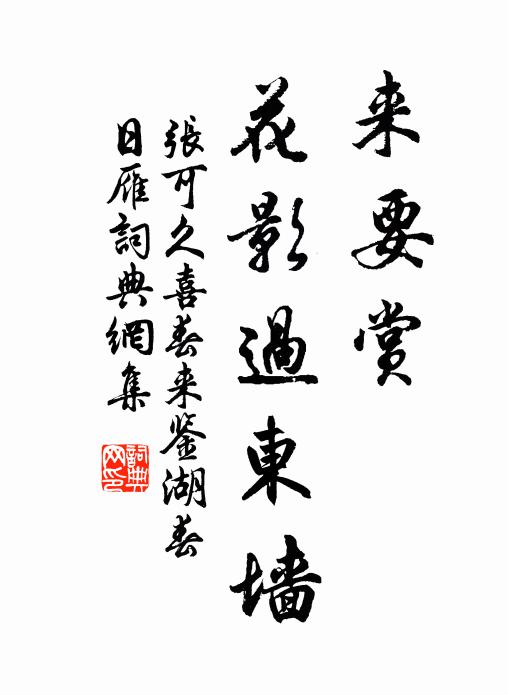 来要赏
花影過東墙
張可久喜春来鉴湖春
日雁詞典網集
詞典网印